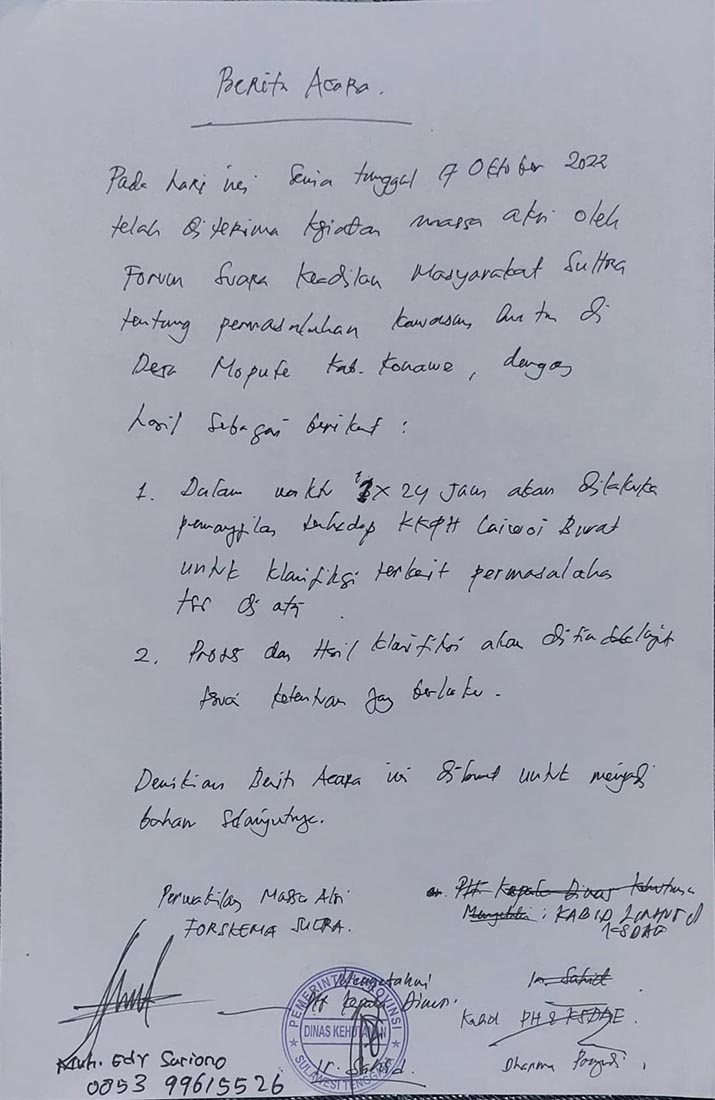 Berita Acara.
Pada hari ini Senin tanggal 17 Oktober 2022
telah diterima kgiatan massa aksi oleh
Forum Suara Keadilan Masyarakat Sultra
tentung permasalahan kawasan hutan di
Desa Mopute Kab. Konawe, dengan
hasil sebagai berikut :
1. Dalam waktu 1x24 jam akan dilakukan
pemanggilan terhadap KKPH Laiwoi Barat
untuk klarifikasi terkait permasalahan
tsb di atas.
2. Proses dan Hasil klarifikasi akan ditindaklanjuti
sesuai ketentuan yang berlaku.
Demikian Berita Acara ini dibuat untuk menjadi
bahan selanjutnya.
Perwakilan Massa Aksi
FORSKEMA SULTRA.
an. Plt. Kepala Dinas Kehutanan
Mengetahui : KABID
KSDAE
Mengetahui
Plt Kepala Dinas.
Ir. Sahid
Kabid PH & KSDAE.
PEMERINTAH PROVINSI
DINAS KEHUTANAN
SULAWESI TENGGARA
Ir. Sahid.
Dharma
Muh. Edy Sariono
0853 99615526